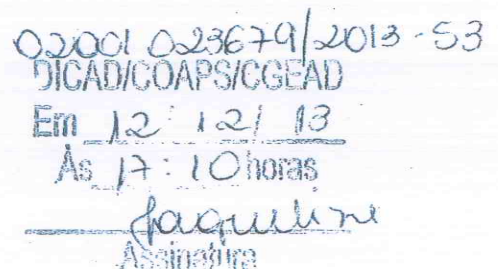 02001 023679/2013-53
DICAD/COAPS/CGEAD
Em 12 / 12 / 13
Às 17:10 horas
Jaqueline
Assinatura